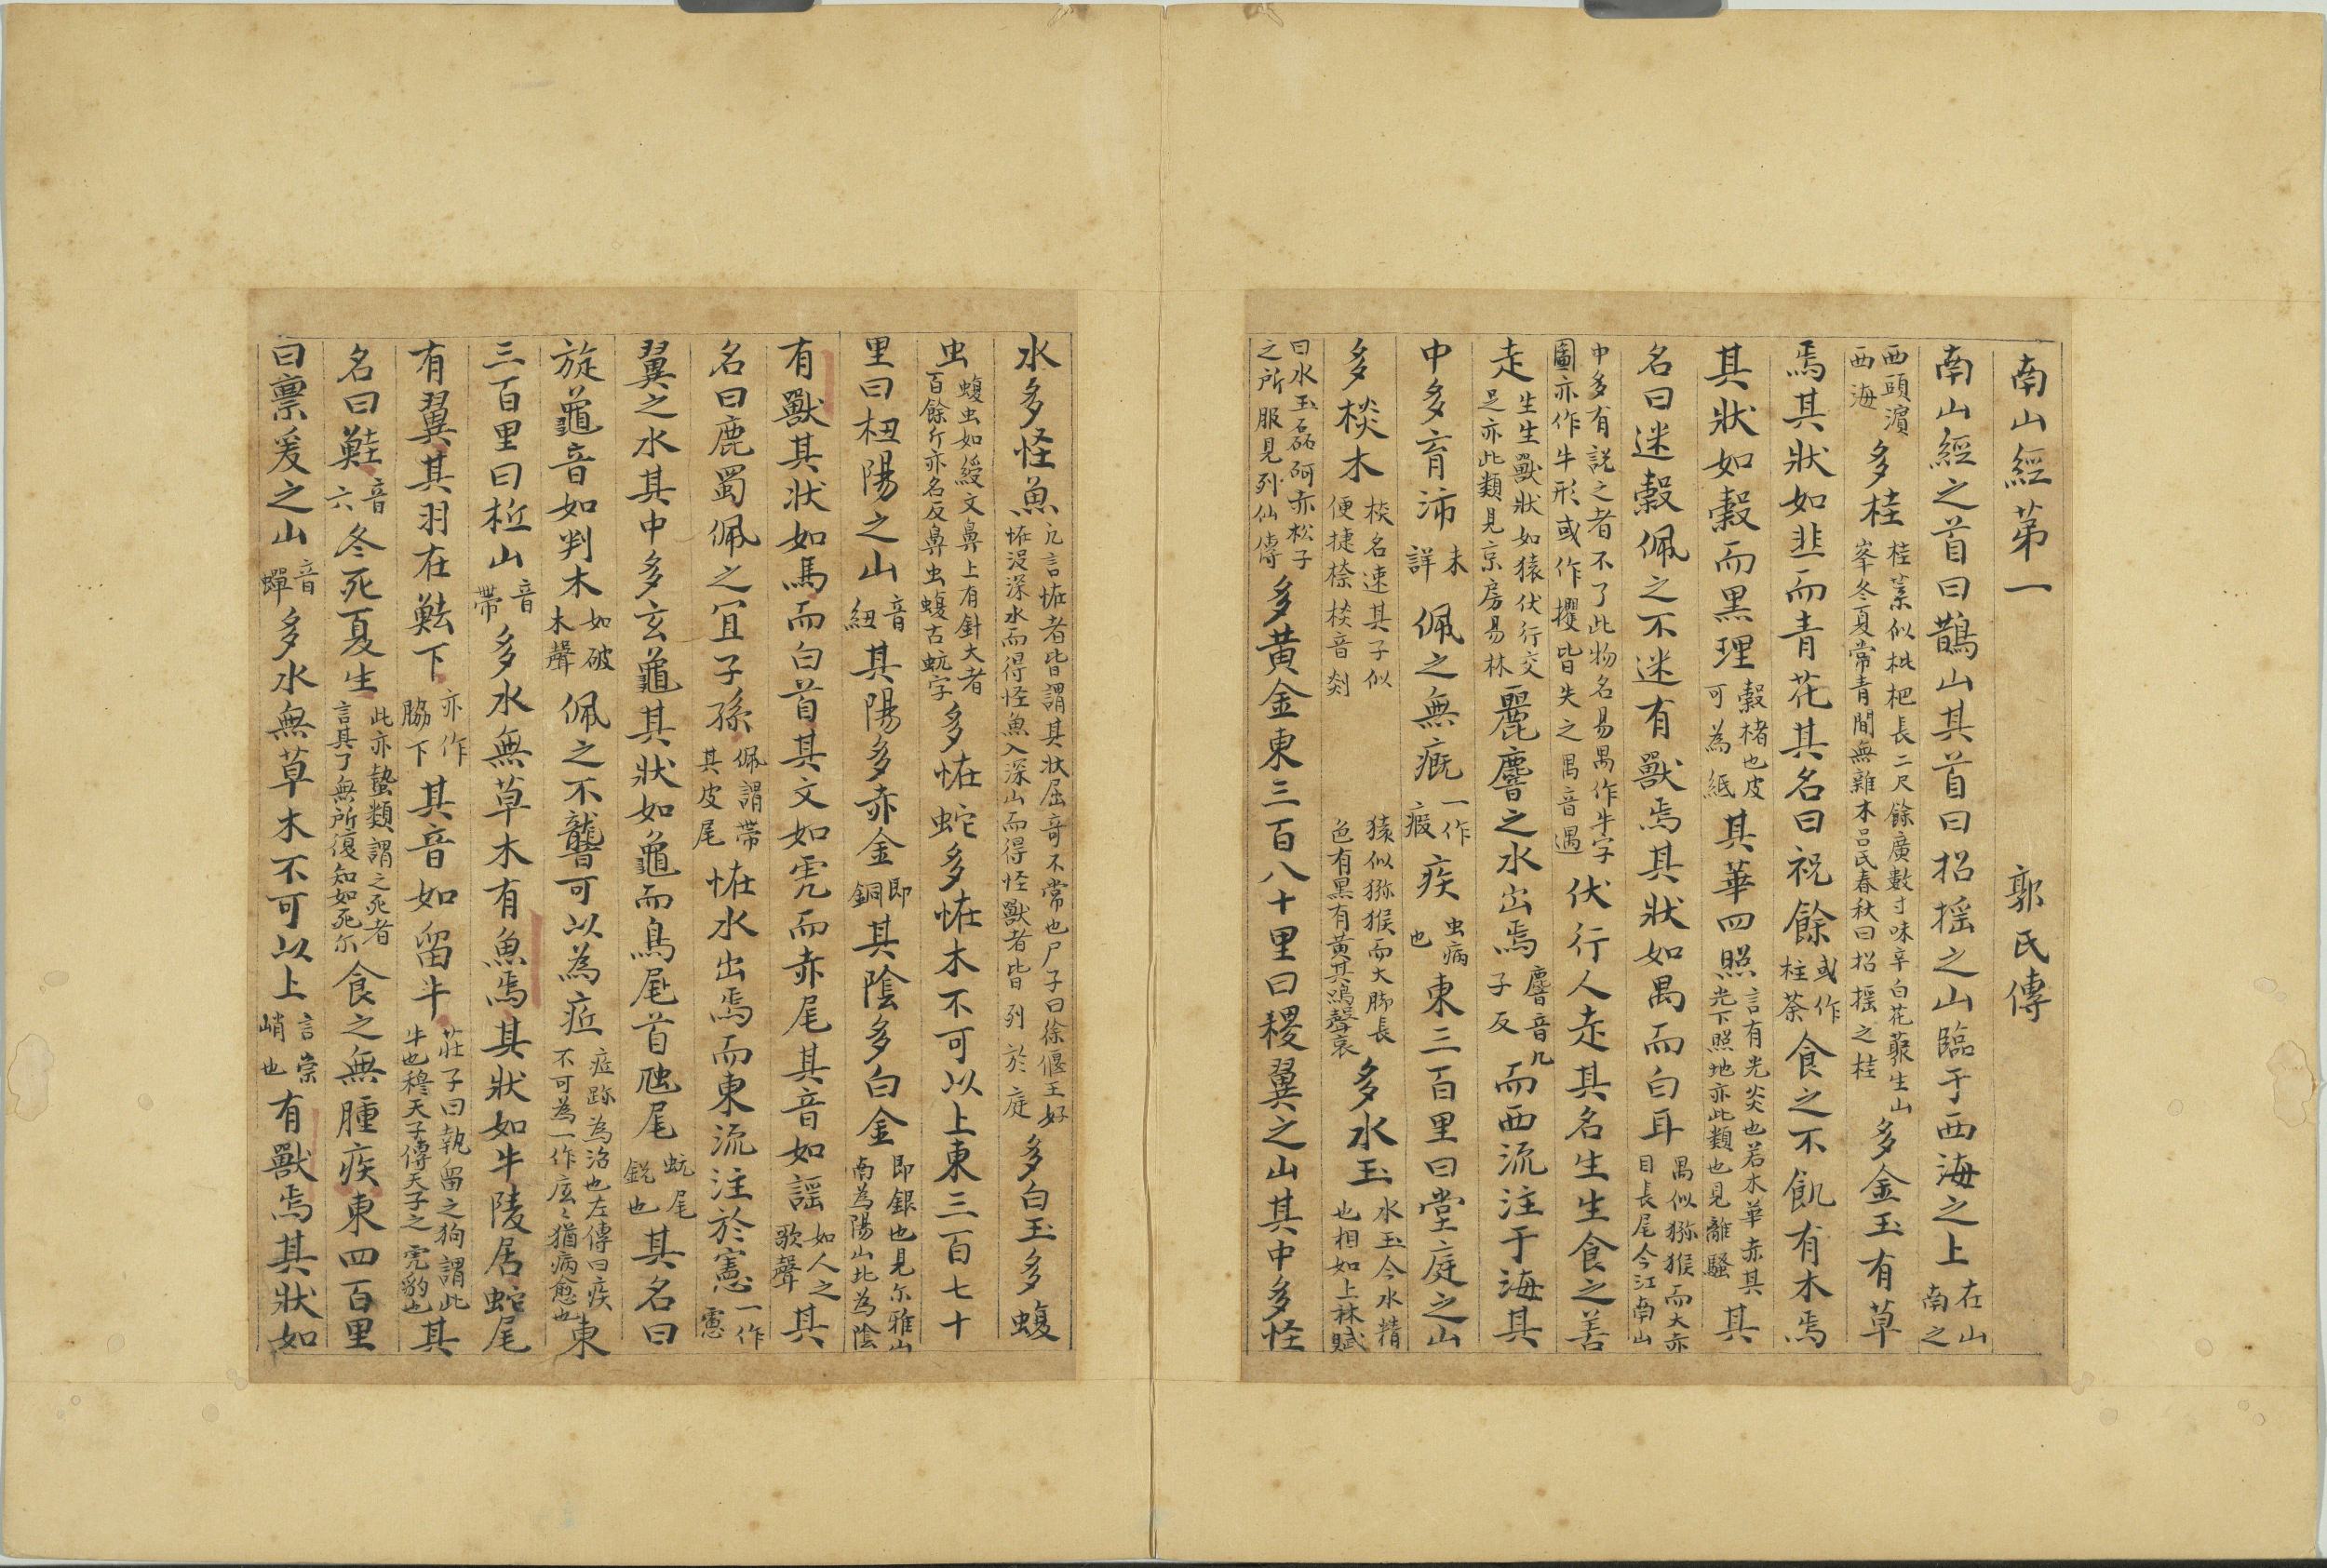 南山經第一 郭氏傳
南山經之首曰鵲山其首曰招搖之山臨于西海之上在山南之
西頭濱西海多桂桂葉似枇杷長二尺餘廣數寸味辛白花叢生山峯冬夏常青間無雜木呂氏春秋曰招搖之桂多金玉有草
焉其狀如韭而青花其名曰祝餘或作柱荼食之不飢有木焉
其狀如榖而黑理榖楮也皮可為紙其華四照言有光炎也若木華赤其光下照地亦此類也見離騷其
名曰迷榖佩之不迷有獸焉其狀如禺而白耳禺似獼猴而大赤目長尾今江南山
中多有說之者不了此物名易禺作牛字圖亦作牛形或作㹶皆失之禺音遇伏行人走其名生生食之善
走生生獸狀如猿伏行交足亦此類見京房易林麗𪊨之水出焉𪊨音几子反而西流注于海其
中多育沛未詳佩之無瘕一作瘕疾虫病也東三百里曰堂庭之山
多棪木棪名速其子似便捷㮈棪音剡猿似獼猴而大脚長色有黑有黃其鳴聲哀多水玉水玉今水精也相如上林賦
曰水玉磊砢赤松子之所服見列仙傳多黃金東三百八十里曰稷翼之山其中多怪
水多怪魚凡言恠者皆謂其狀屈奇不常也尸子曰徐偃王好恠沒深水而得怪魚入深山而得怪獸者皆列於庭多白玉多蝮
虫蝮虫如綬文鼻上有針大者百餘斤亦名反鼻虫蝮古虺字多恠蛇多恠木不可以上東三百七十
里曰杻陽之山音紐其陽多赤金即銅其陰多白金即銀也見尔雅山南為陽山北為陰
有獸其狀如馬而白首其文如虎而赤尾其音如謡如人之歌聲其
名曰鹿蜀佩之宜子孫佩謂帶其皮尾恠水出焉而東流注於憲一作𢡱
翼之水其中多玄龜其狀如龜而鳥尾首虺尾虺尾銳也其名曰
旋龜音如判木如破木聲佩之不聾可以為疷疷跡為治也左傳曰疾不可為一作㡳㡳猶病愈也東
三百里曰柢山音帶多水無草木有魚焉其狀如牛陵居蛇尾
有翼其羽在魼下亦作脇下其音如留牛莊子曰執留之狗謂此牛也穆天子傳天子之虎豹也其
名曰鯥音六冬死夏生此亦蟄類謂之死者言其了無所復知如死尔食之無腫疾東四百里
曰亶爰之山音蟬多水無草木不可以上言崇峭也有獸焉其狀如